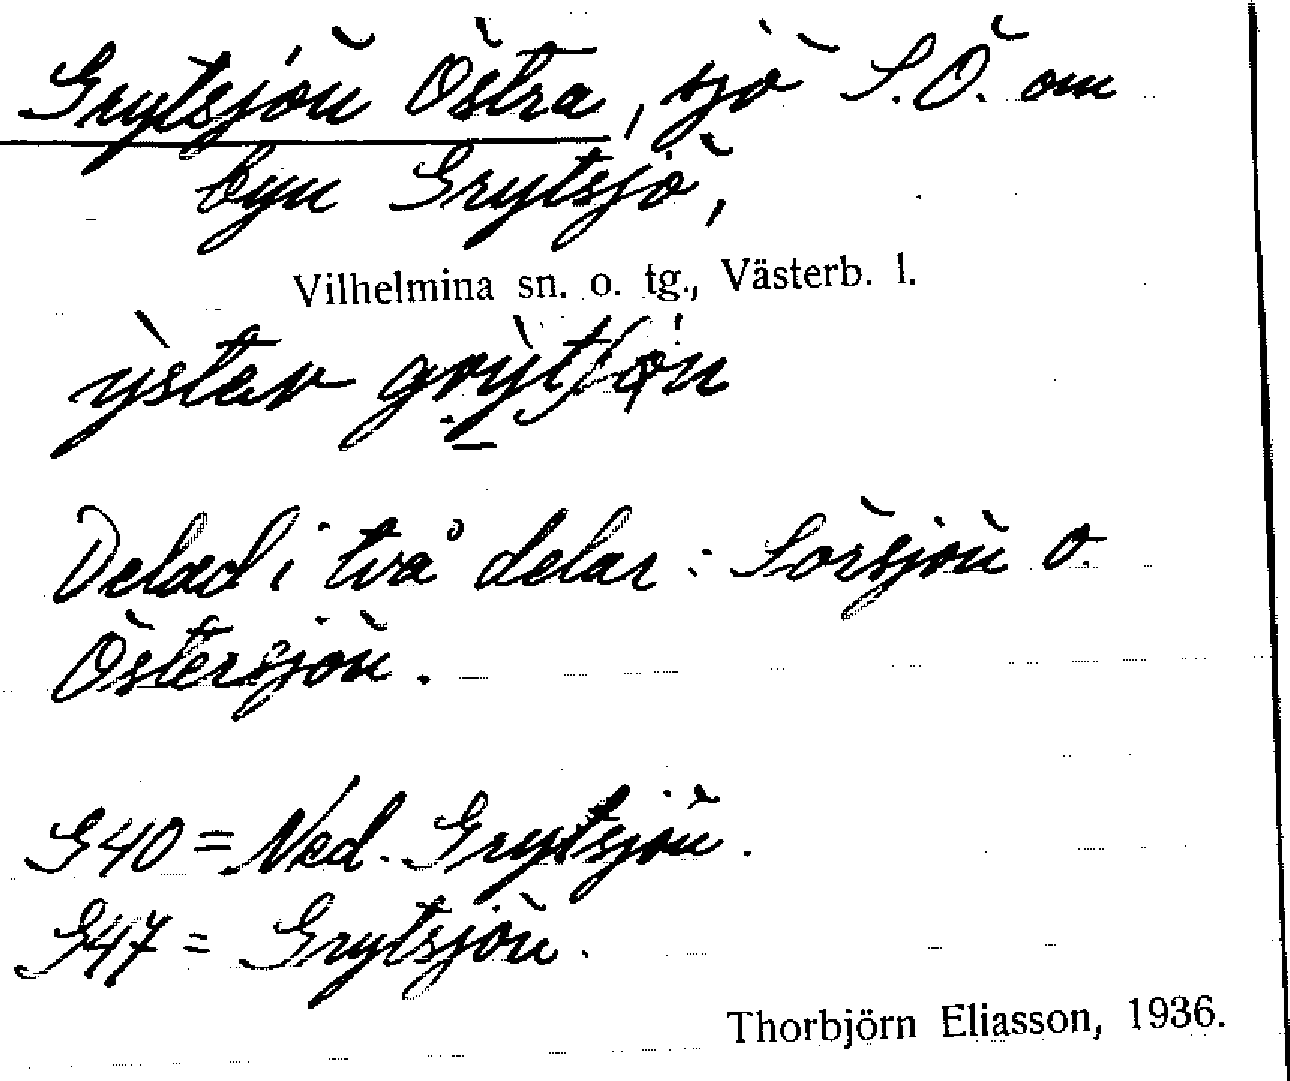 Grytsjön Östra, sjö S.Ö. om
byn Grytsjö,
Vilhelmina sn. o. tg., Västerb. l.
ỳstar
Delad i två delar: Sörsjön o.
Östersjön.
G40 = Ned. Grytsjön.
G47 = Grytsjön.
Thorbjörn Eliasson, 1936.